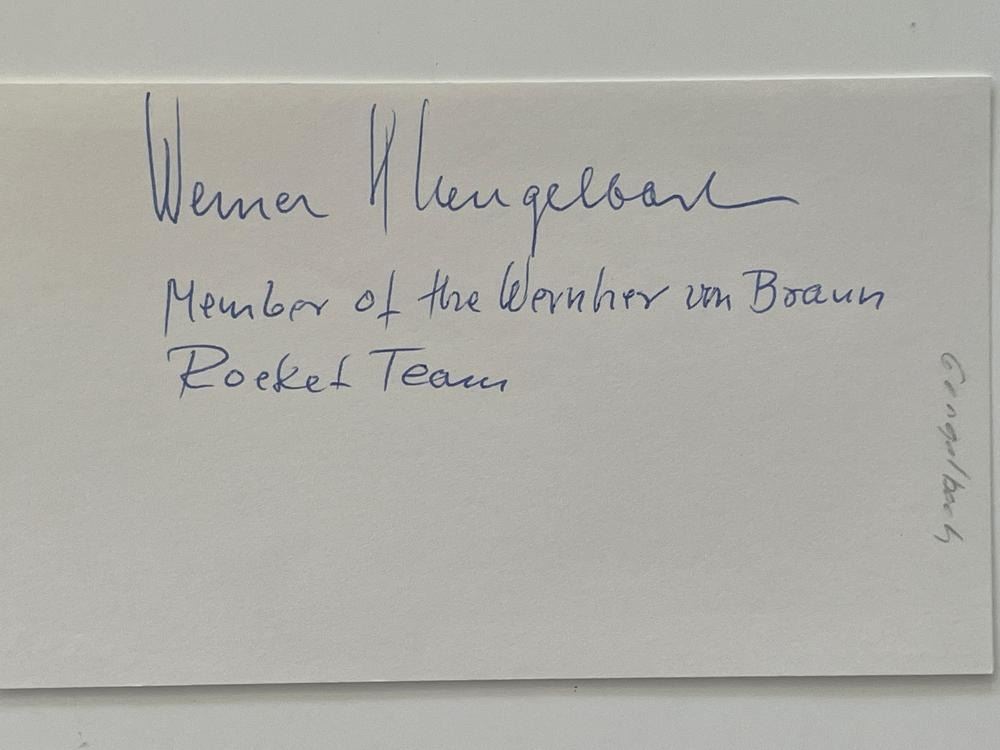 Werner K Gengelbach
Member of the Wernher von Braun
Rocket Team
Gengelbach